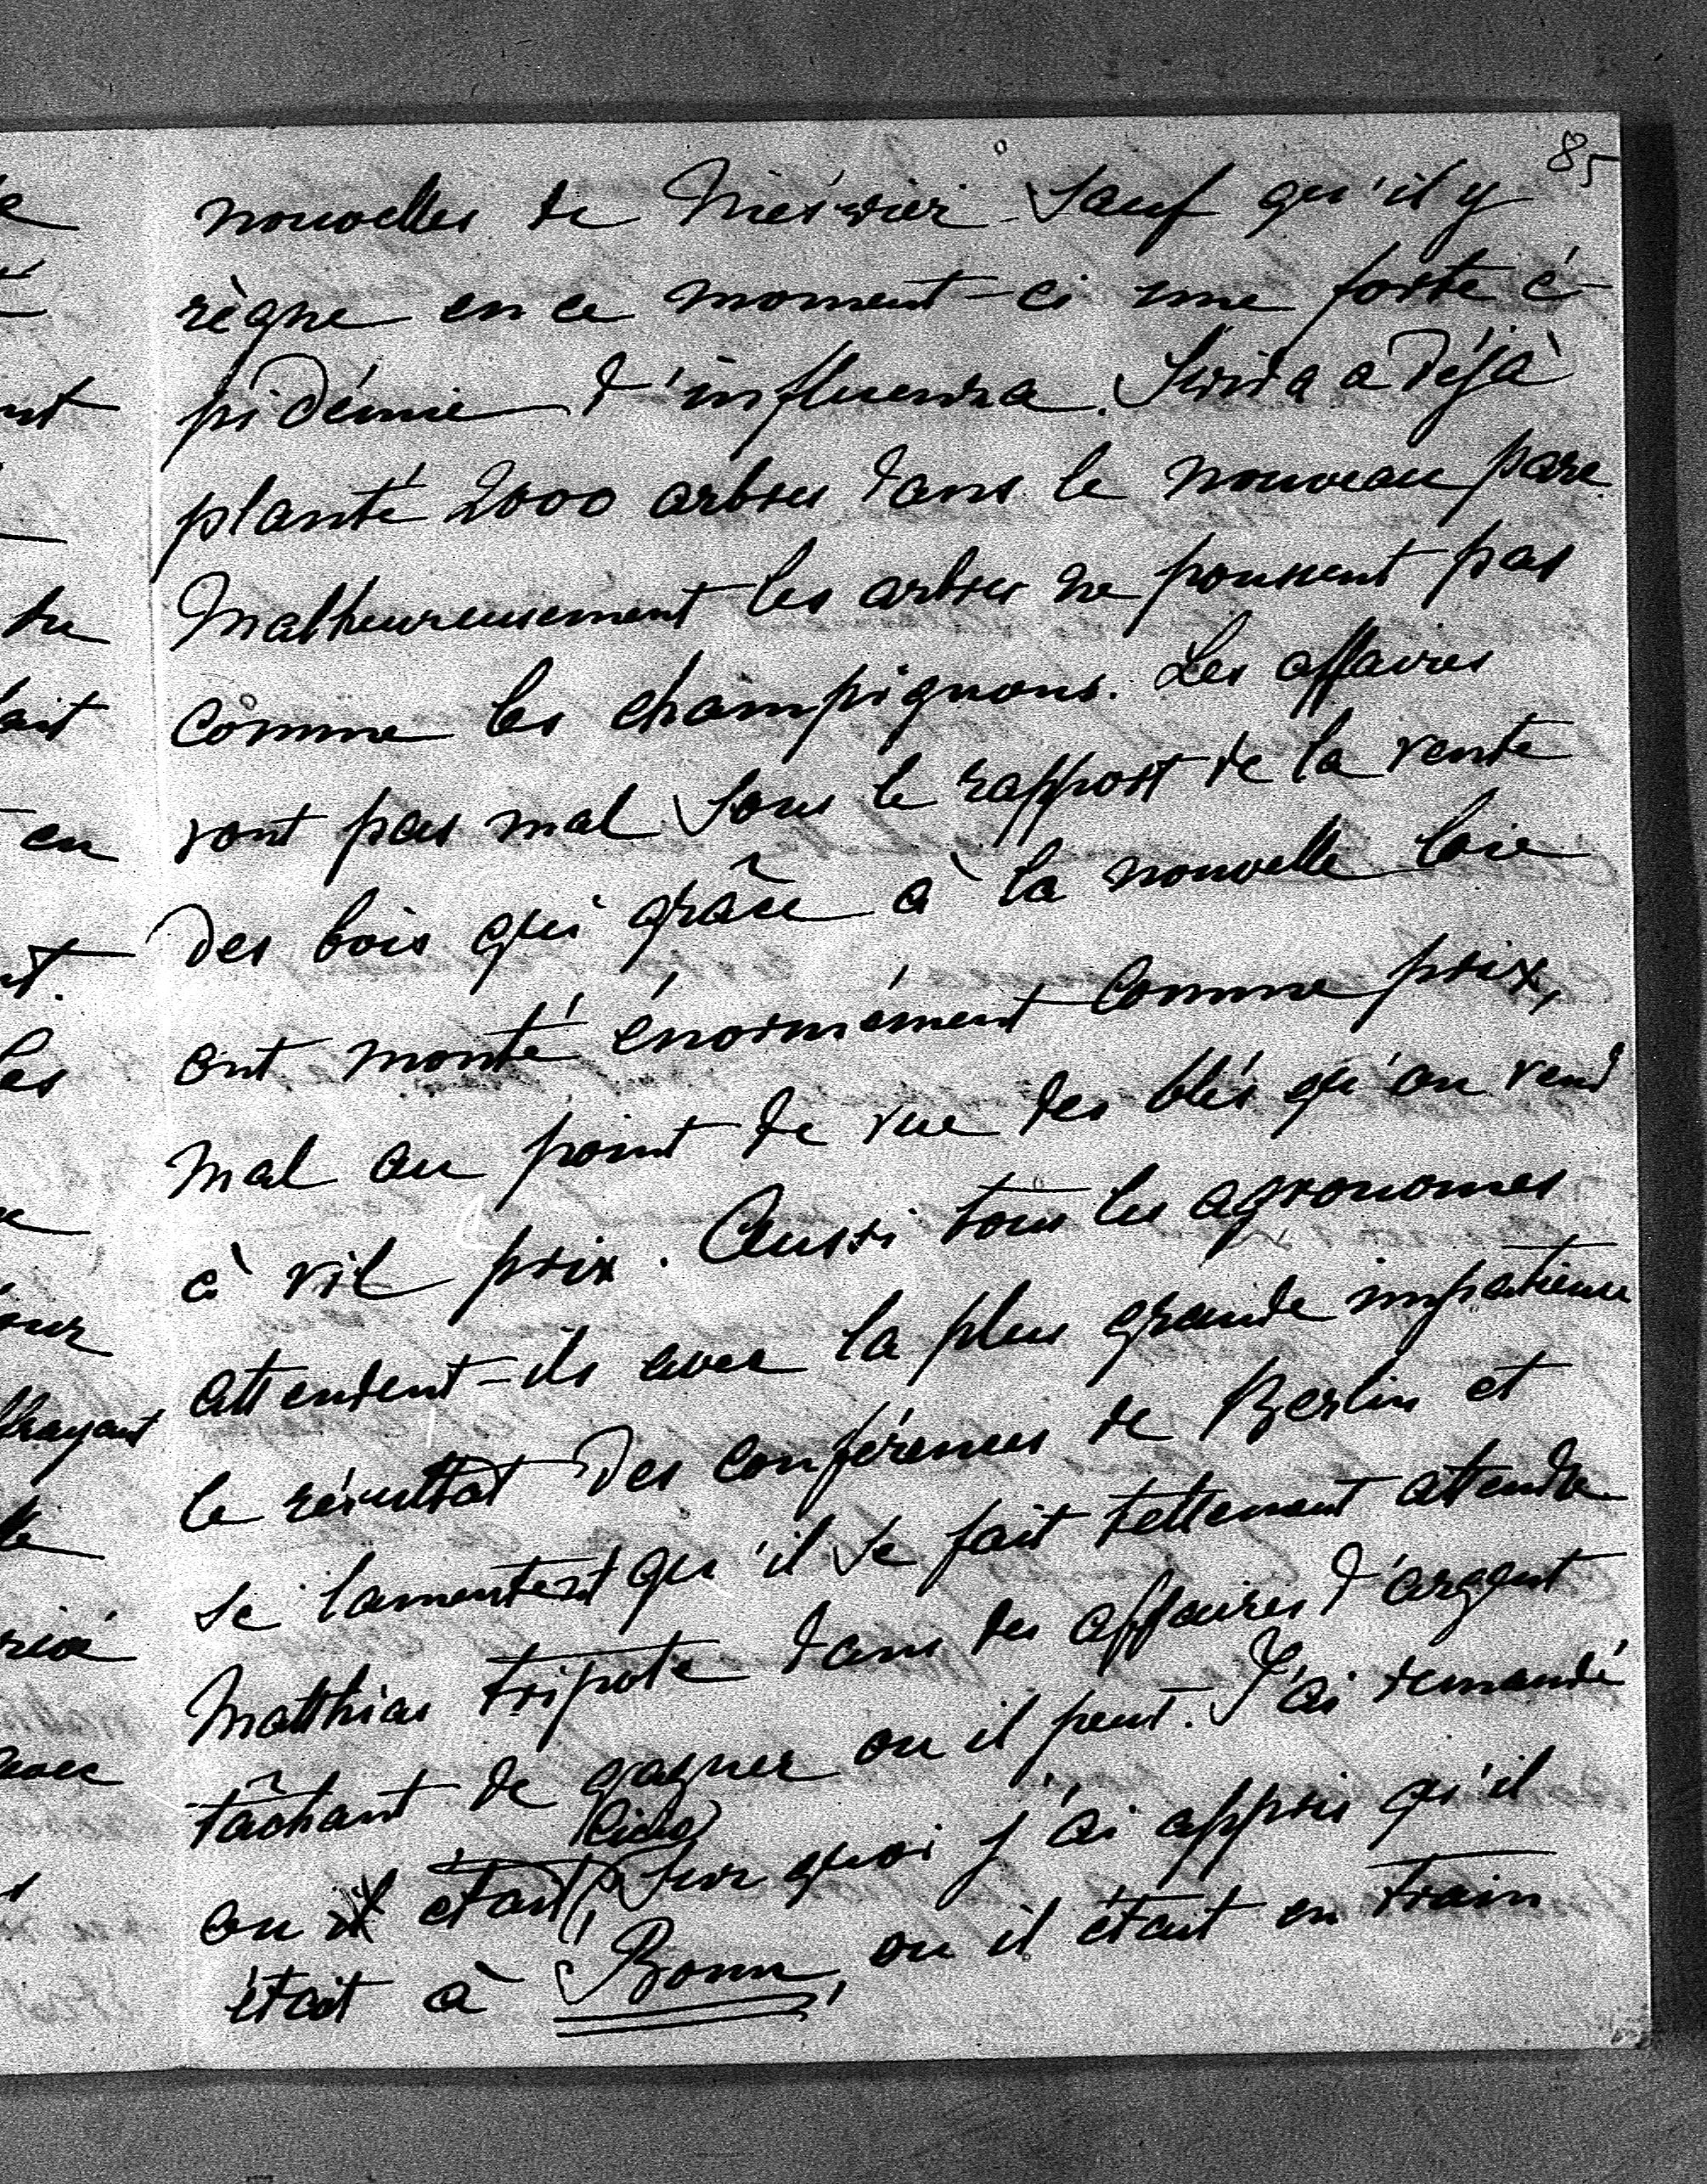 85
nouvelles de Niéswier sauf qu'il y
règne en ce moment-ci une forte é-
pidémie d'influenza. Swida a déjà
planté 2000 arbres dans le nouveau parc
Malheureusement les arbres ne poussent pas
comme les champignons. Les affaires
vont pas mal sous le rapport de la vente
des bois qui grâce à la nouvelle loie
ont monté énormément comme prix,
mal au point de vue des blés qu'on vend
à vil prix. Aussi tous les agronomes
attendent-ils avec la plus grande impatience
le résultat des conférences de Berlin et
se lamentent qu'il se fait tellement attendre
Matthias tripote dans des affaires d'argent
tâchant de gagner ou il peut. J'ai demandé
ou était sur quoi j'ai appris qu'il
était à Bonn, ou il était en train